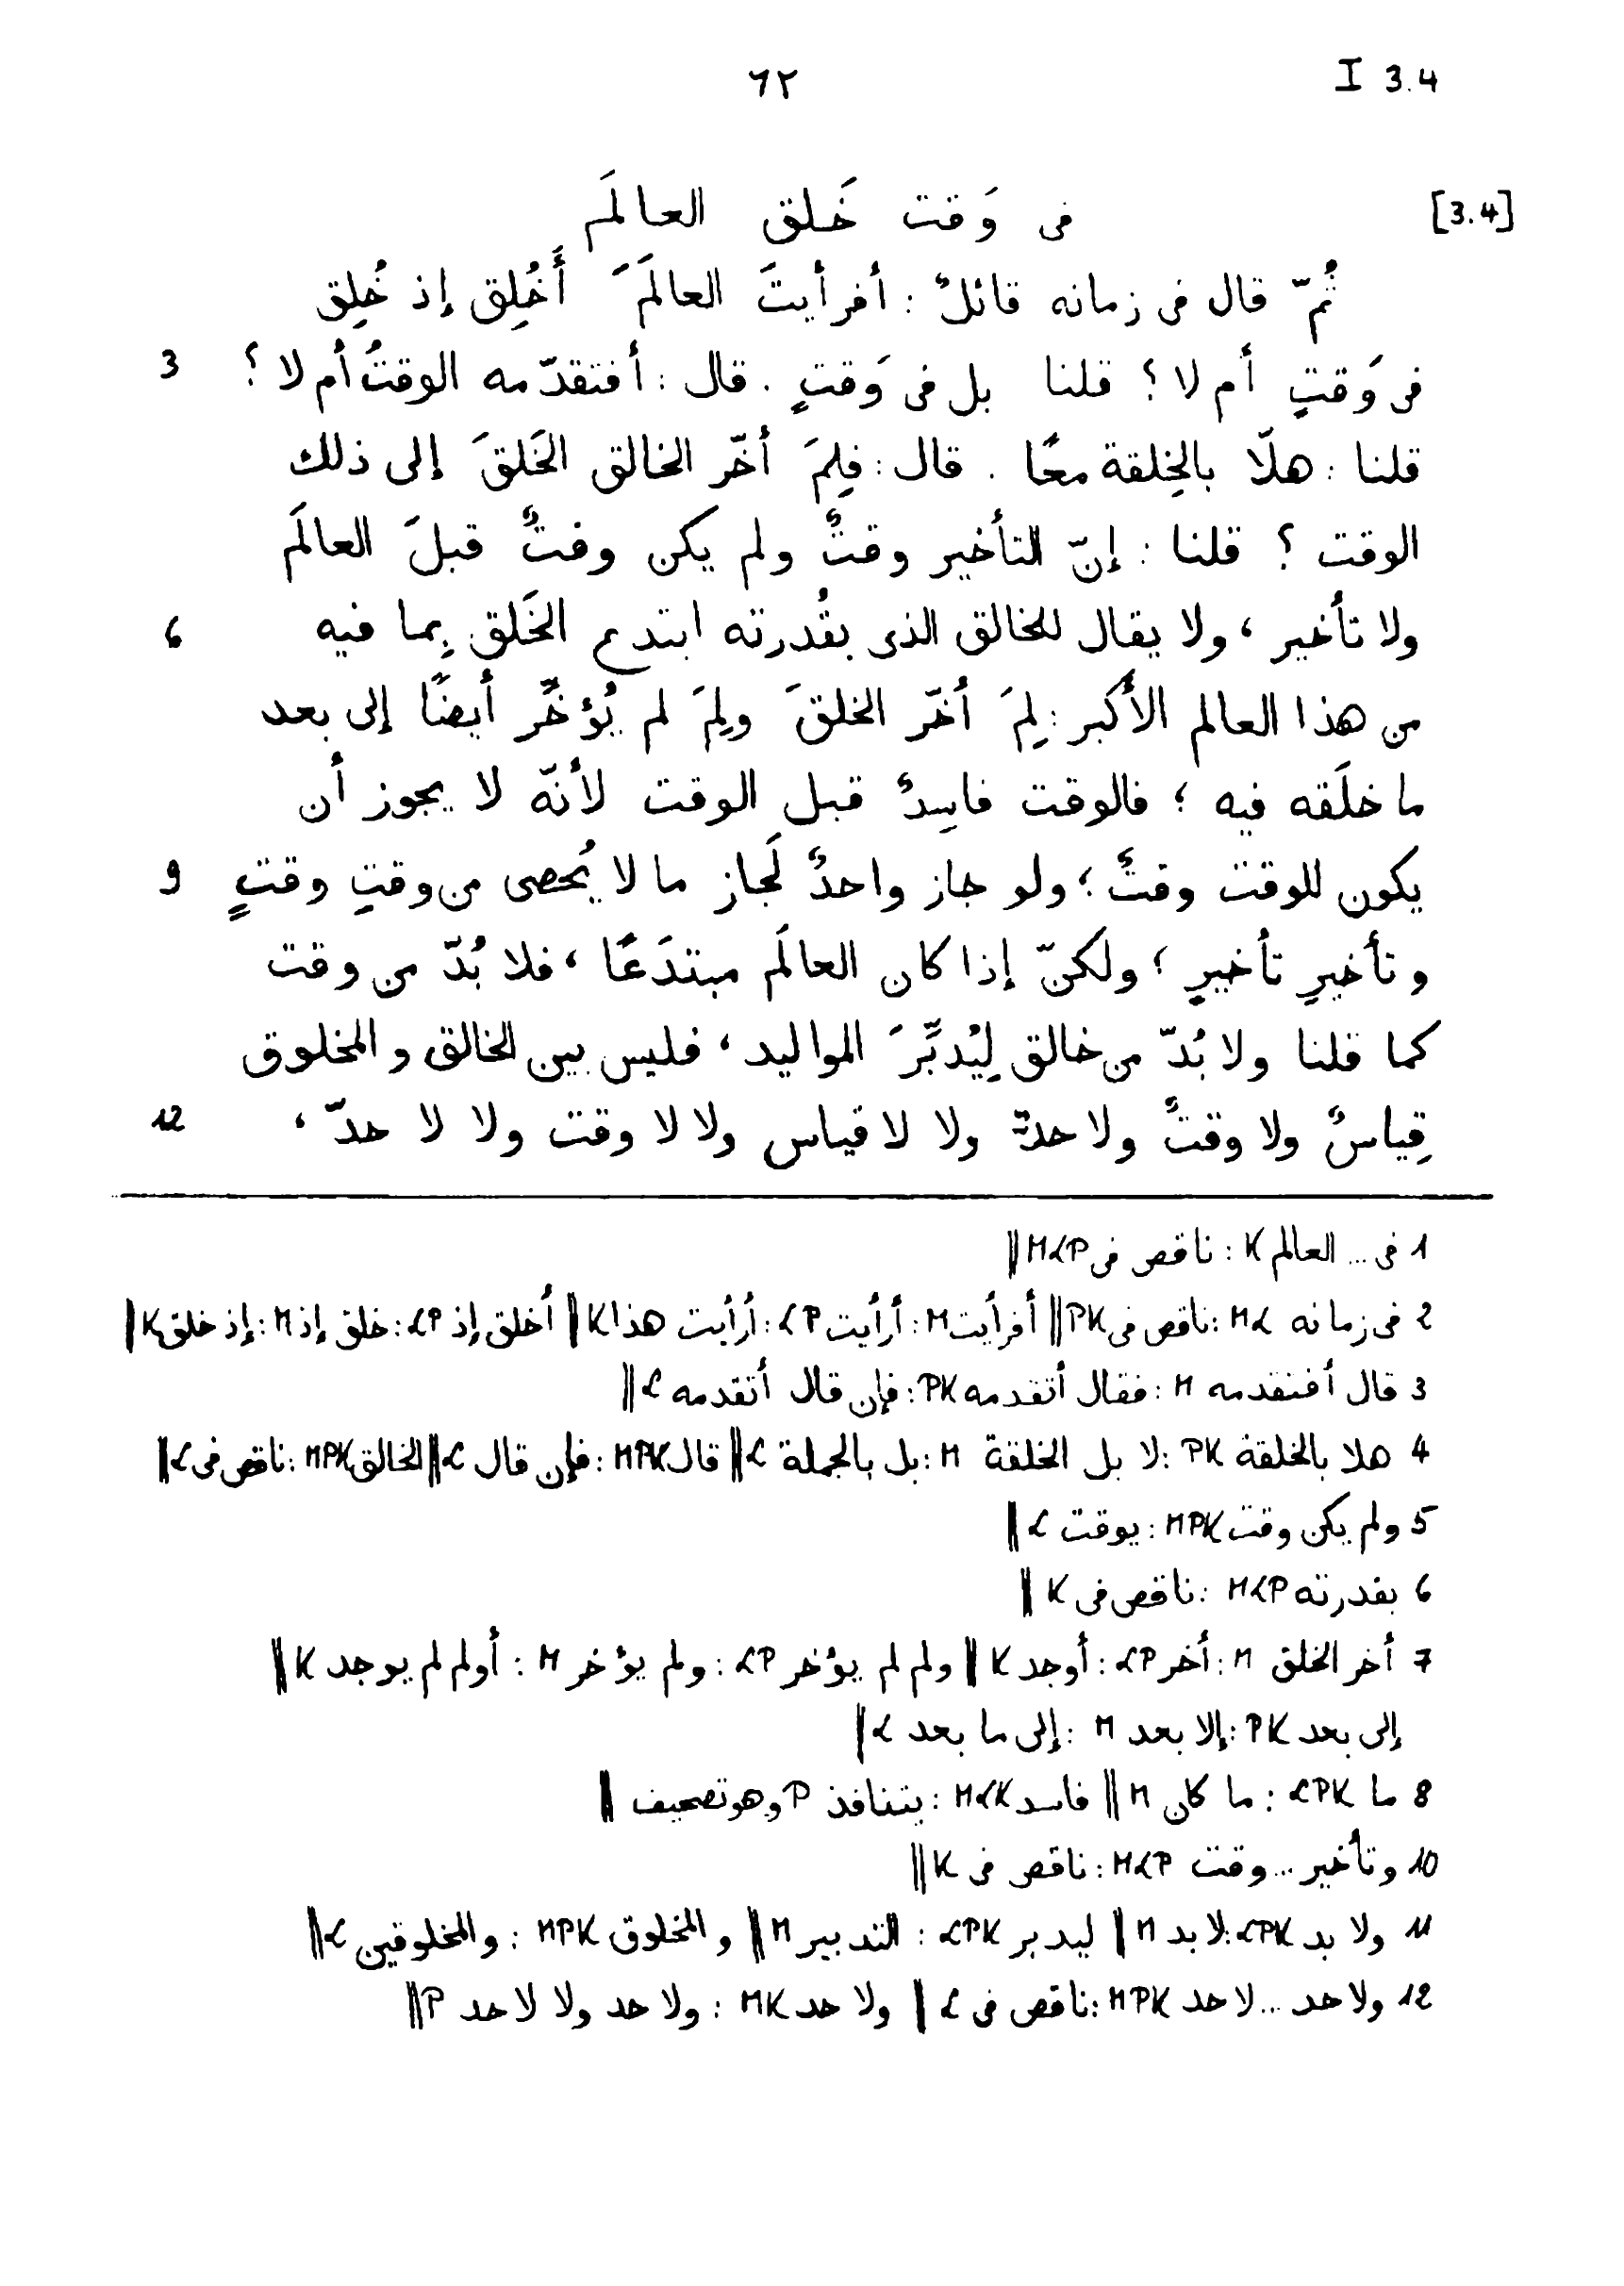 ٦٢ I 3.4
[3.4] فى وَقت خَلق العالَم
ثُمّ قال فى زمانه قائلٌ : أفرأيتَ العالَمَ أَخُلِق إذ خُلِق
فى وَقتٍ أم لا ؟ قلنا بل فى وَقتٍ . قال : أفتقدّمه الوقتُ أم لا ؟ 3
قلنا : هلّا بالخِلقة معًا . قال : فلِمَ أخّر الخالق الخَلقَ إلى ذلك
الوقت ؟ قلنا : إنّ التأخير وقتٌ ولم يكن وقتٌ قبلَ العالَم
ولا تأخير ، ولا يقال للخالق الذى بقُدرته ابتدع الخَلق بِما فيه 6
من هذا العالم الأكبر : لِمَ أخّر الخلقَ ولِمَ لم يُؤخَّر أيضًا إلى بعد
ما خلَقه فيه ؛ فالوقت فاسِدٌ قبل الوقت لأنّه لا يجوز أن
يكون للوقت وقتٌ ؛ ولو جاز واحدٌ لَجاز ما لا يُحصى من وقتِ وقتٍ 9
وتأخيرِ تأخيرٍ ؛ ولكنّ إذا كان العالَم مبتدَعًا ، فلا بُدّ من وقت
كما قلنا ولا بُدّ من خالق لِيُدبِّرَ المواليد ، فليس بين الخالق والمخلوق
قِياسٌ ولا وقتٌ ولا حدٌّ ولا لا قياس ولا لا وقت ولا لا حدّ ، 12
1 فى ... العالم K : ناقص فى MLP ||
2 فى زمانه ML : ناقص فى PK || أفرأيت M : أرأيت LP : أرأيت هذا K || أخلق إذ LP : خلق إذ M : إذ خلق K ||
3 قال أفتقدمه M : فقال أتقدمه PK : فإن قال أتقدمه L ||
4 هلا بالخلقة PK : لا بل الخلقة M : بل بالجملة L || قال MPK : فإن قال L || الخالق MPK : ناقص فى L ||
5 ولم يكن وقت MPK : يوقت L ||
6 بقدرته MLP : ناقص فى K ||
7 أخر الخلق M : أخر LP : أوجد K || ولم لم يؤخر LP : ولم يؤخر M : أولم لم يوجد K ||
إلى بعد PK : إلا بعد M : إلى ما بعد L ||
8 ما LPK : ما كان M || فاسد MLK : يتنافذ P وهو تصحيف ||
10 وتأخير ... وقت MLP : ناقص فى K ||
11 ولا بد LPK : لا بد M || ليدبر LPK : التدبير M || والمخلوق MPK : والمخلوقين L ||
12 ولا حد ... لا حد MPK : ناقص فى L || ولا حد MK : ولا حد ولا لا حد P ||